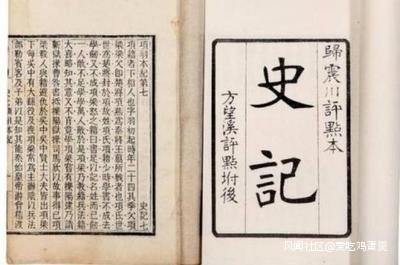 歸震川評點本
史記
方望溪評點坿後
項羽本紀第七 史記七
項籍者下相人也字羽初起時年二十四其季父項
梁梁父即楚將項燕爲秦將王翦所戮者也項氏世
世爲楚將封於項故姓項氏項籍少時學書不成去
學劍又不成項梁怒之籍曰書足以記名姓而已劍
一人敵不足學學萬人敵於是項梁乃教籍兵法籍
大喜略知其意又不肯竟學項梁嘗有櫟陽逮乃請
蘄獄掾曹咎書抵櫟陽獄掾司馬欣以故事得已項
梁殺人與籍避仇於吳中吳中賢士大夫皆出項梁
下每吳中有大繇役及喪項梁常爲主辦陰以兵法
部勒賓客及子弟以是知其能秦始皇帝游會稽渡
风闻社区@爱吃鸡蛋羹